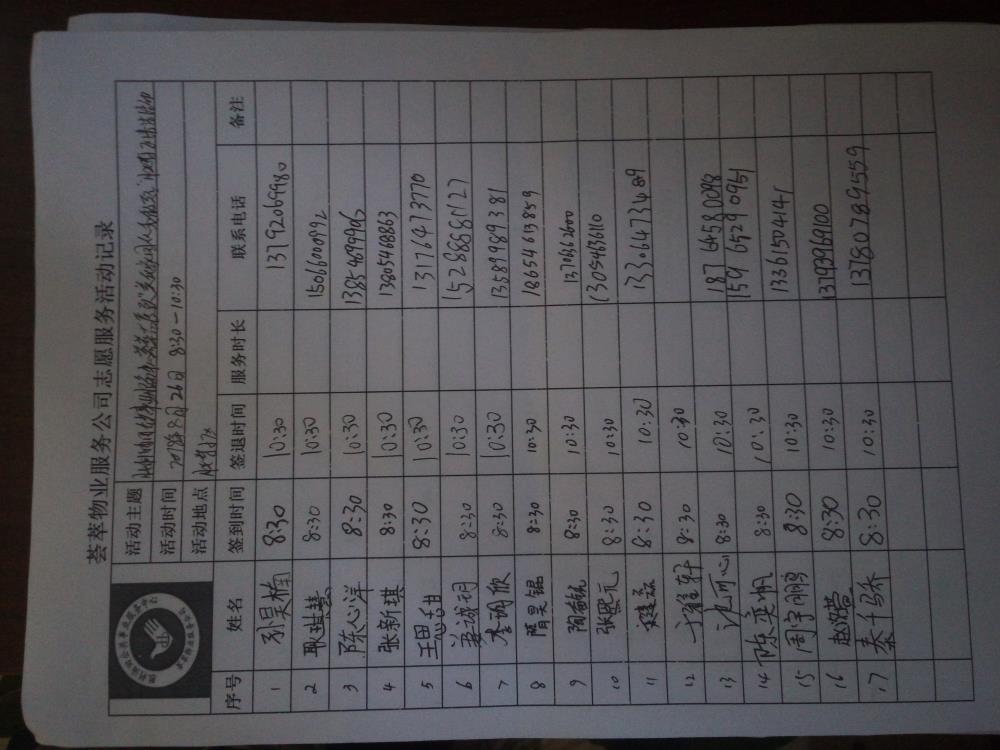 荟萃物业服务公司志愿服务活动记录
活动主题
活动时间 2018年8月26日 8:30-10:30
活动地点
序号 姓名 签到时间 签退时间 服务时长 联系电话 备注
1 孙昊楠 8:30 10:30 13792069980
2 耿琪慧 8:30 10:30 15066000992
3 陈心洋 8:30 10:30 13854699906
4 张新琪 8:30 10:30 13805468863
5 王思甜 8:30 10:30 13176473770
6 姜诚玥 8:30 10:30 15288888127
7 李润欣 8:30 10:30 13589989381
8 隋昊锟 8:30 10:30 18654613859
9 8:30 10:30 13706362600
10 张熙元 8:30 10:30 13054636110
11 8:30 10:30 13306473489
12 8:30 10:30
13 8:30 10:30 18764580098
14 陈奕帆 8:30 10:30 15965290951
15 周宇鹏 8:30 10:30 13361504141
16 赵浩营 8:30 10:30 13793969100
17 秦千乔 8:30 10:30 13780789559